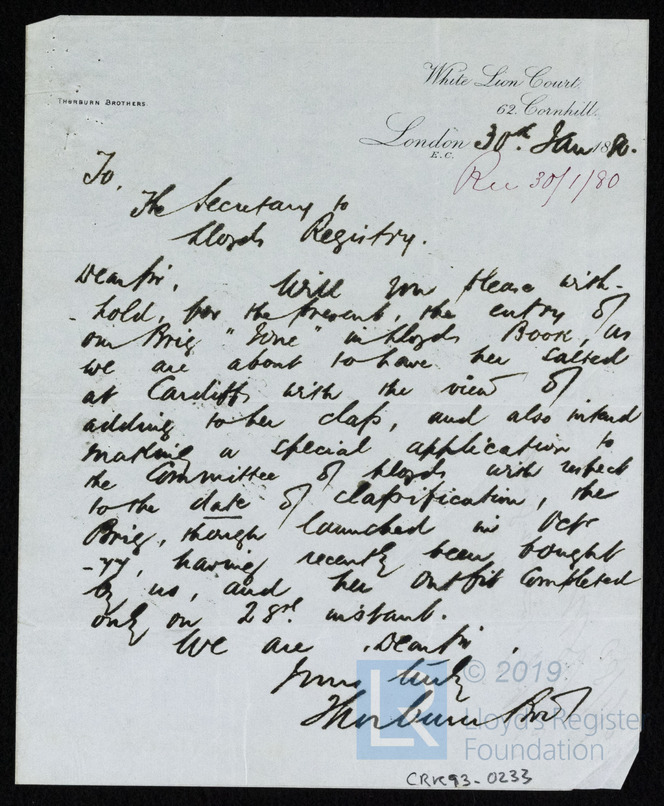 THORBURN BROTHERS
White Lion Court,
62. Cornhill.
London 30th. Jan 1880.
E.C.
Rec 30/1/80
To,
The Secretary to
Lloyds Registry.
Dear Sir, Will you please with-
-hold, for the present, the entry of
our Brig "" in Lloyds Book, as
we are about to have her salted
at Cardiff with the view of
adding to her class, and also intend
making a special application to
the Committee of Lloyds with respect
to the date of classification, the
Brig, though launched in Octr
-77, having recently been bought
by us, and her outfit completed
only on 28th. instant.
We are, Dear Sir,
Yours truly
Thorburn Bros
© 2019
LR
Lloyd's Register
Foundation
CRK93-0233